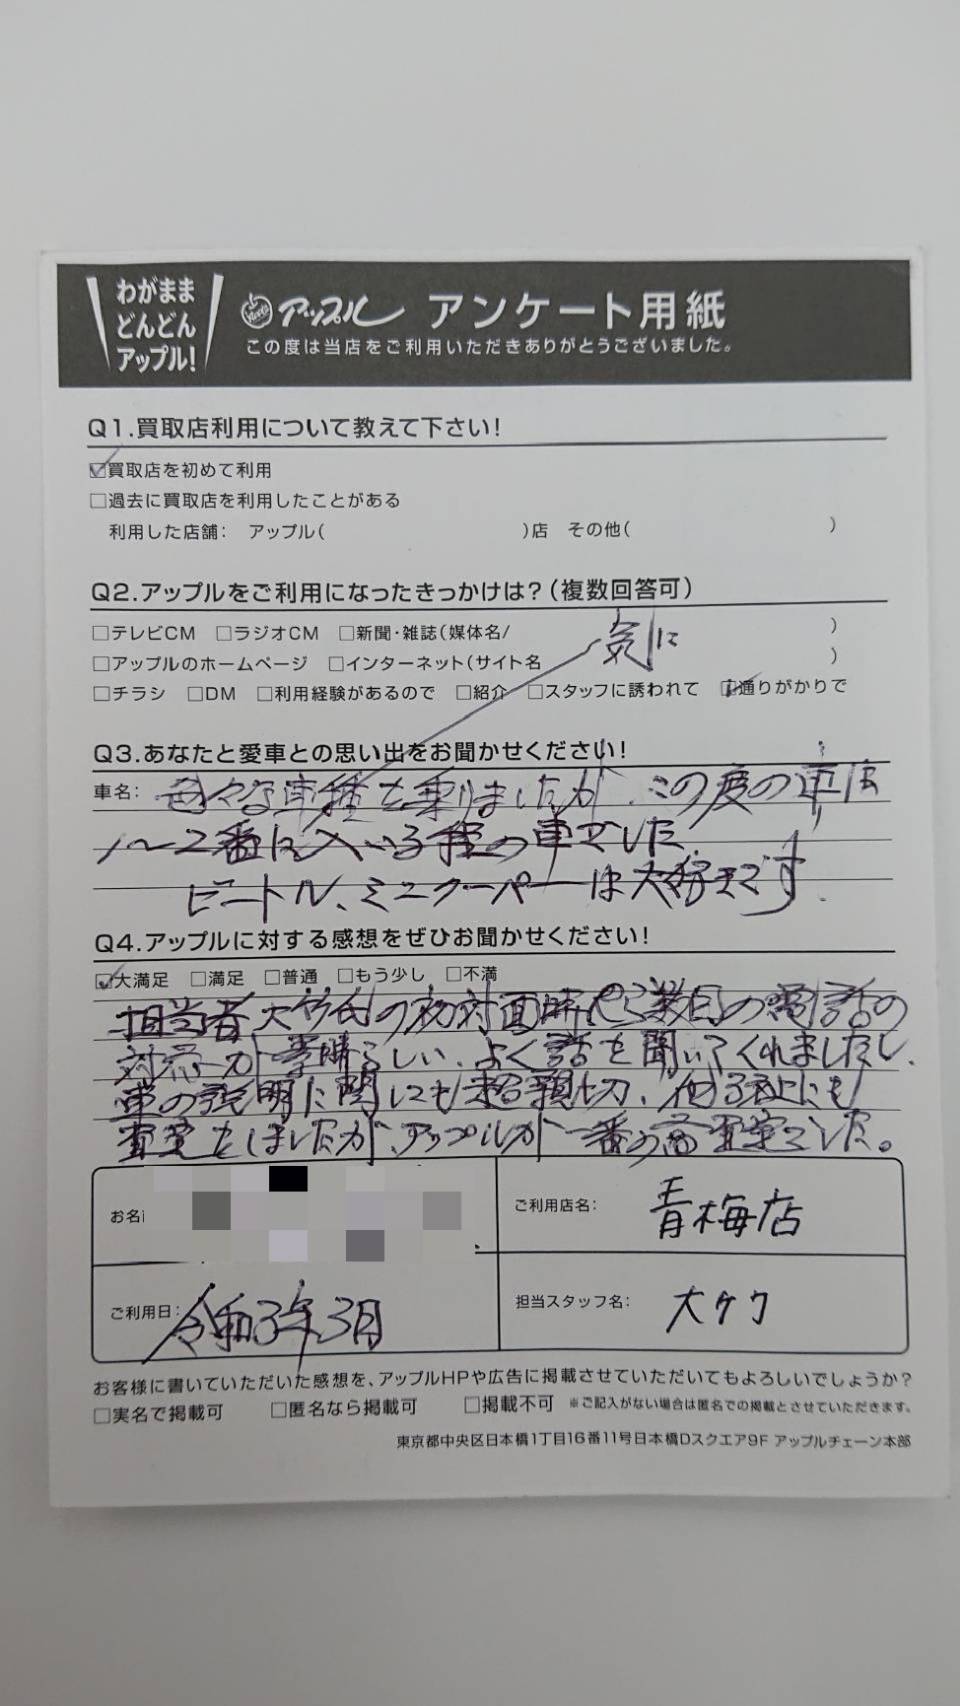 わがまま
どんどん
アップル!
アップル アンケート用紙
この度は当店をご利用いただきありがとうございました。
Q1.買取店利用について教えて下さい!
☑買取店を初めて利用
□過去に買取店を利用したことがある
利用した店舗: アップル( )店 その他( )
Q2.アップルをご利用になったきっかけは?(複数回答可)
□テレビCM □ラジオCM □新聞・雑誌(媒体名/ )
□アップルのホームページ □インターネット(サイト名 )
□チラシ □DM □利用経験があるので □紹介 □スタッフに誘われて ☑通りがかりで
気に
Q3.あなたと愛車との思い出をお聞かせください!
車名: 色々な車種を乗りましたが、この度の車は
1〜2番に入いる程の車でした
ビートル、ミニクーパーは大好きです
Q4.アップルに対する感想をぜひお聞かせください!
☑大満足 □満足 □普通 □もう少し □不満
担当者大竹氏の初対面時から数回の電話の
対応が素晴らしい、よく話を聞いてくれましたし、
車の説明に関しても超親切、他3社にも
査定をしましたが、アップルが一番の高査定でした。
お名
ご利用店名: 青梅店
ご利用日: 令和3年3月
担当スタッフ名: 大ケク
お客様に書いていただいた感想を、アップルHPや広告に掲載させていただいてもよろしいでしょうか?
□実名で掲載可 □匿名なら掲載可 □掲載不可 ※ご記入がない場合は匿名での掲載とさせていただきます。
東京都中央区日本橋1丁目16番11号日本橋Dスクエア9F アップルチェーン本部